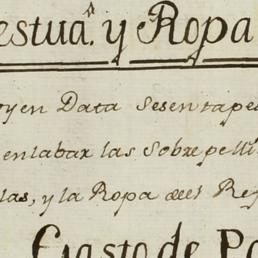 estua.ᵃ y Ropa
oy en Data Sesenta pe
en labar las Sobrepelli
las, y la Ropa del Re
Gasto de Po